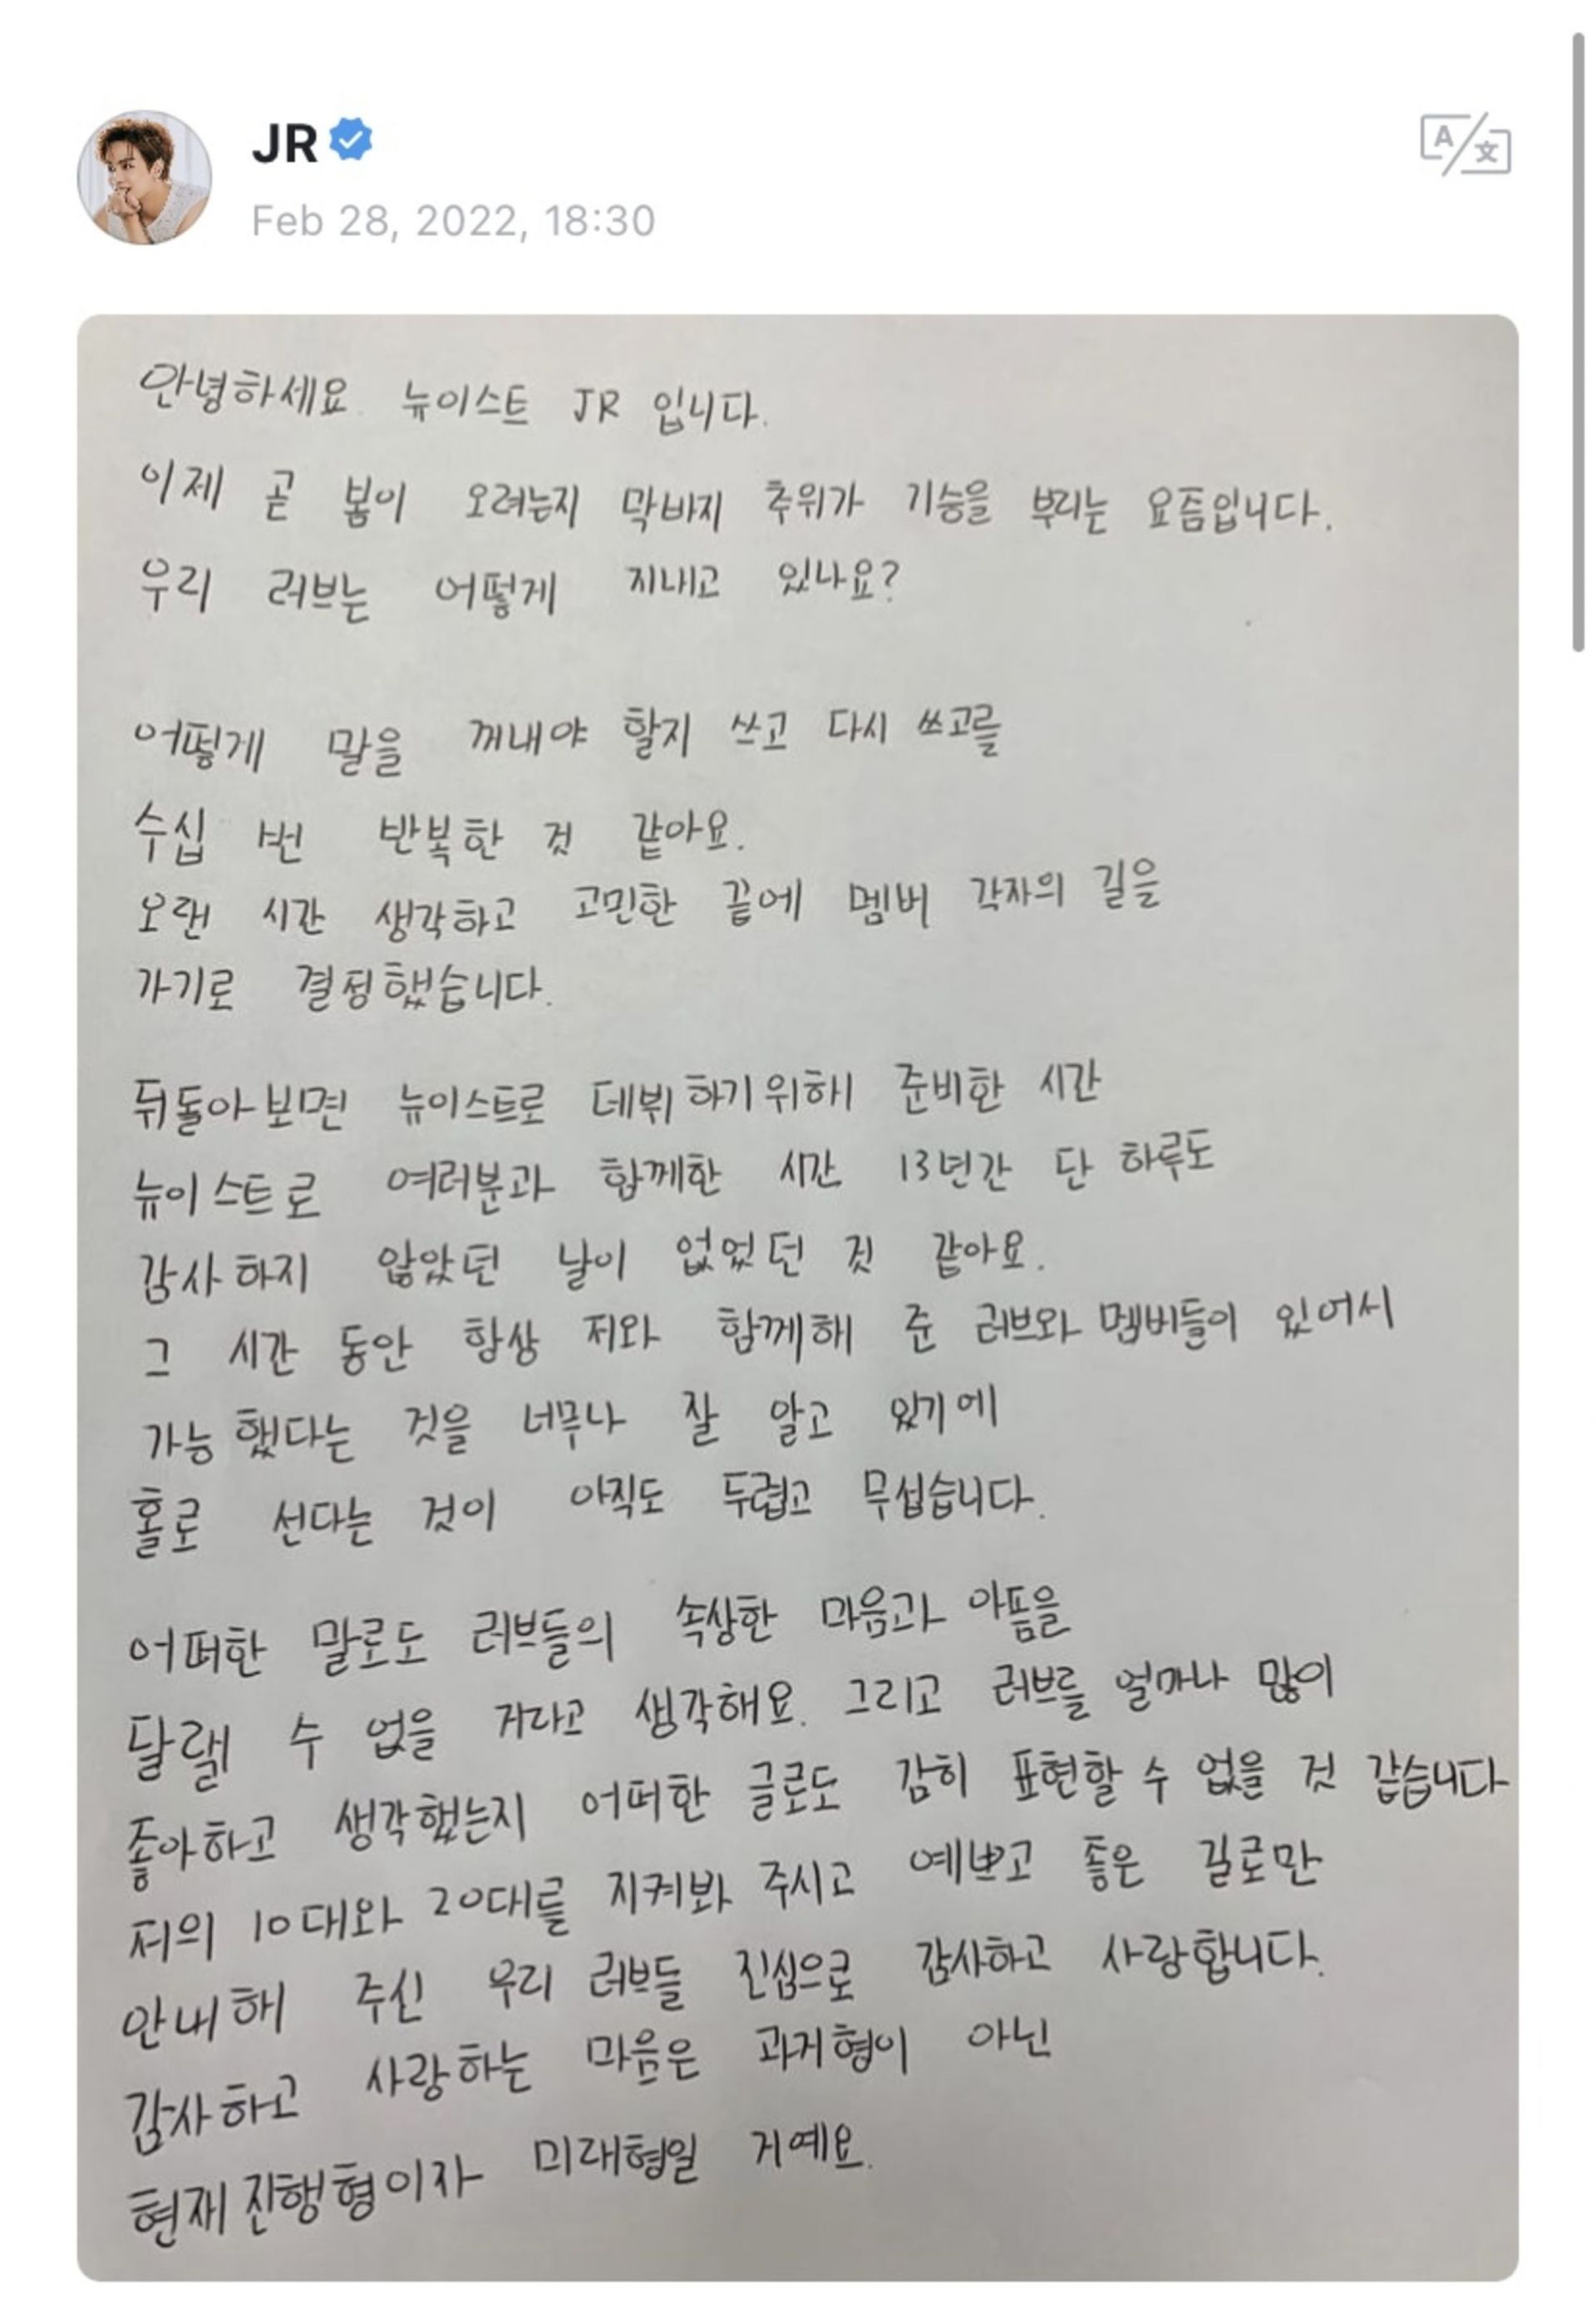 JR
Feb 28, 2022, 18:30
A/文
안녕하세요. 뉴이스트 JR 입니다.
이제 곧 봄이 오려는지 막바지 추위가 기승을 부리는 요즘입니다.
우리 러브는 어떻게 지내고 있나요?
어떻게 말을 꺼내야 할지 쓰고 다시 쓰고를
수십 번 반복한 것 같아요.
오랜 시간 생각하고 고민한 끝에 멤버 각자의 길을
가기로 결정했습니다.
뒤돌아보면 뉴이스트로 데뷔하기위해 준비한 시간
뉴이스트로 여러분과 함께한 시간 13년간 단 하루도
감사하지 않았던 날이 없었던 것 같아요.
그 시간 동안 항상 저와 함께해 준 러브와 멤버들이 있어서
가능했다는 것을 너무나 잘 알고 있기에
홀로 선다는 것이 아직도 두렵고 무섭습니다.
어떠한 말로도 러브들의 속상한 마음과 아픔을
달랠 수 없을 거라고 생각해요. 그리고 러브를 얼마나 많이
좋아하고 생각했는지 어떠한 글로도 감히 표현할 수 없을 것 같습니다
저의 10대와 20대를 지켜봐 주시고 예쁘고 좋은 길로만
안내해 주신 우리 러브들 진심으로 감사하고 사랑합니다.
감사하고 사랑하는 마음은 과거형이 아닌
현재진행형이자 미래형일 거예요.